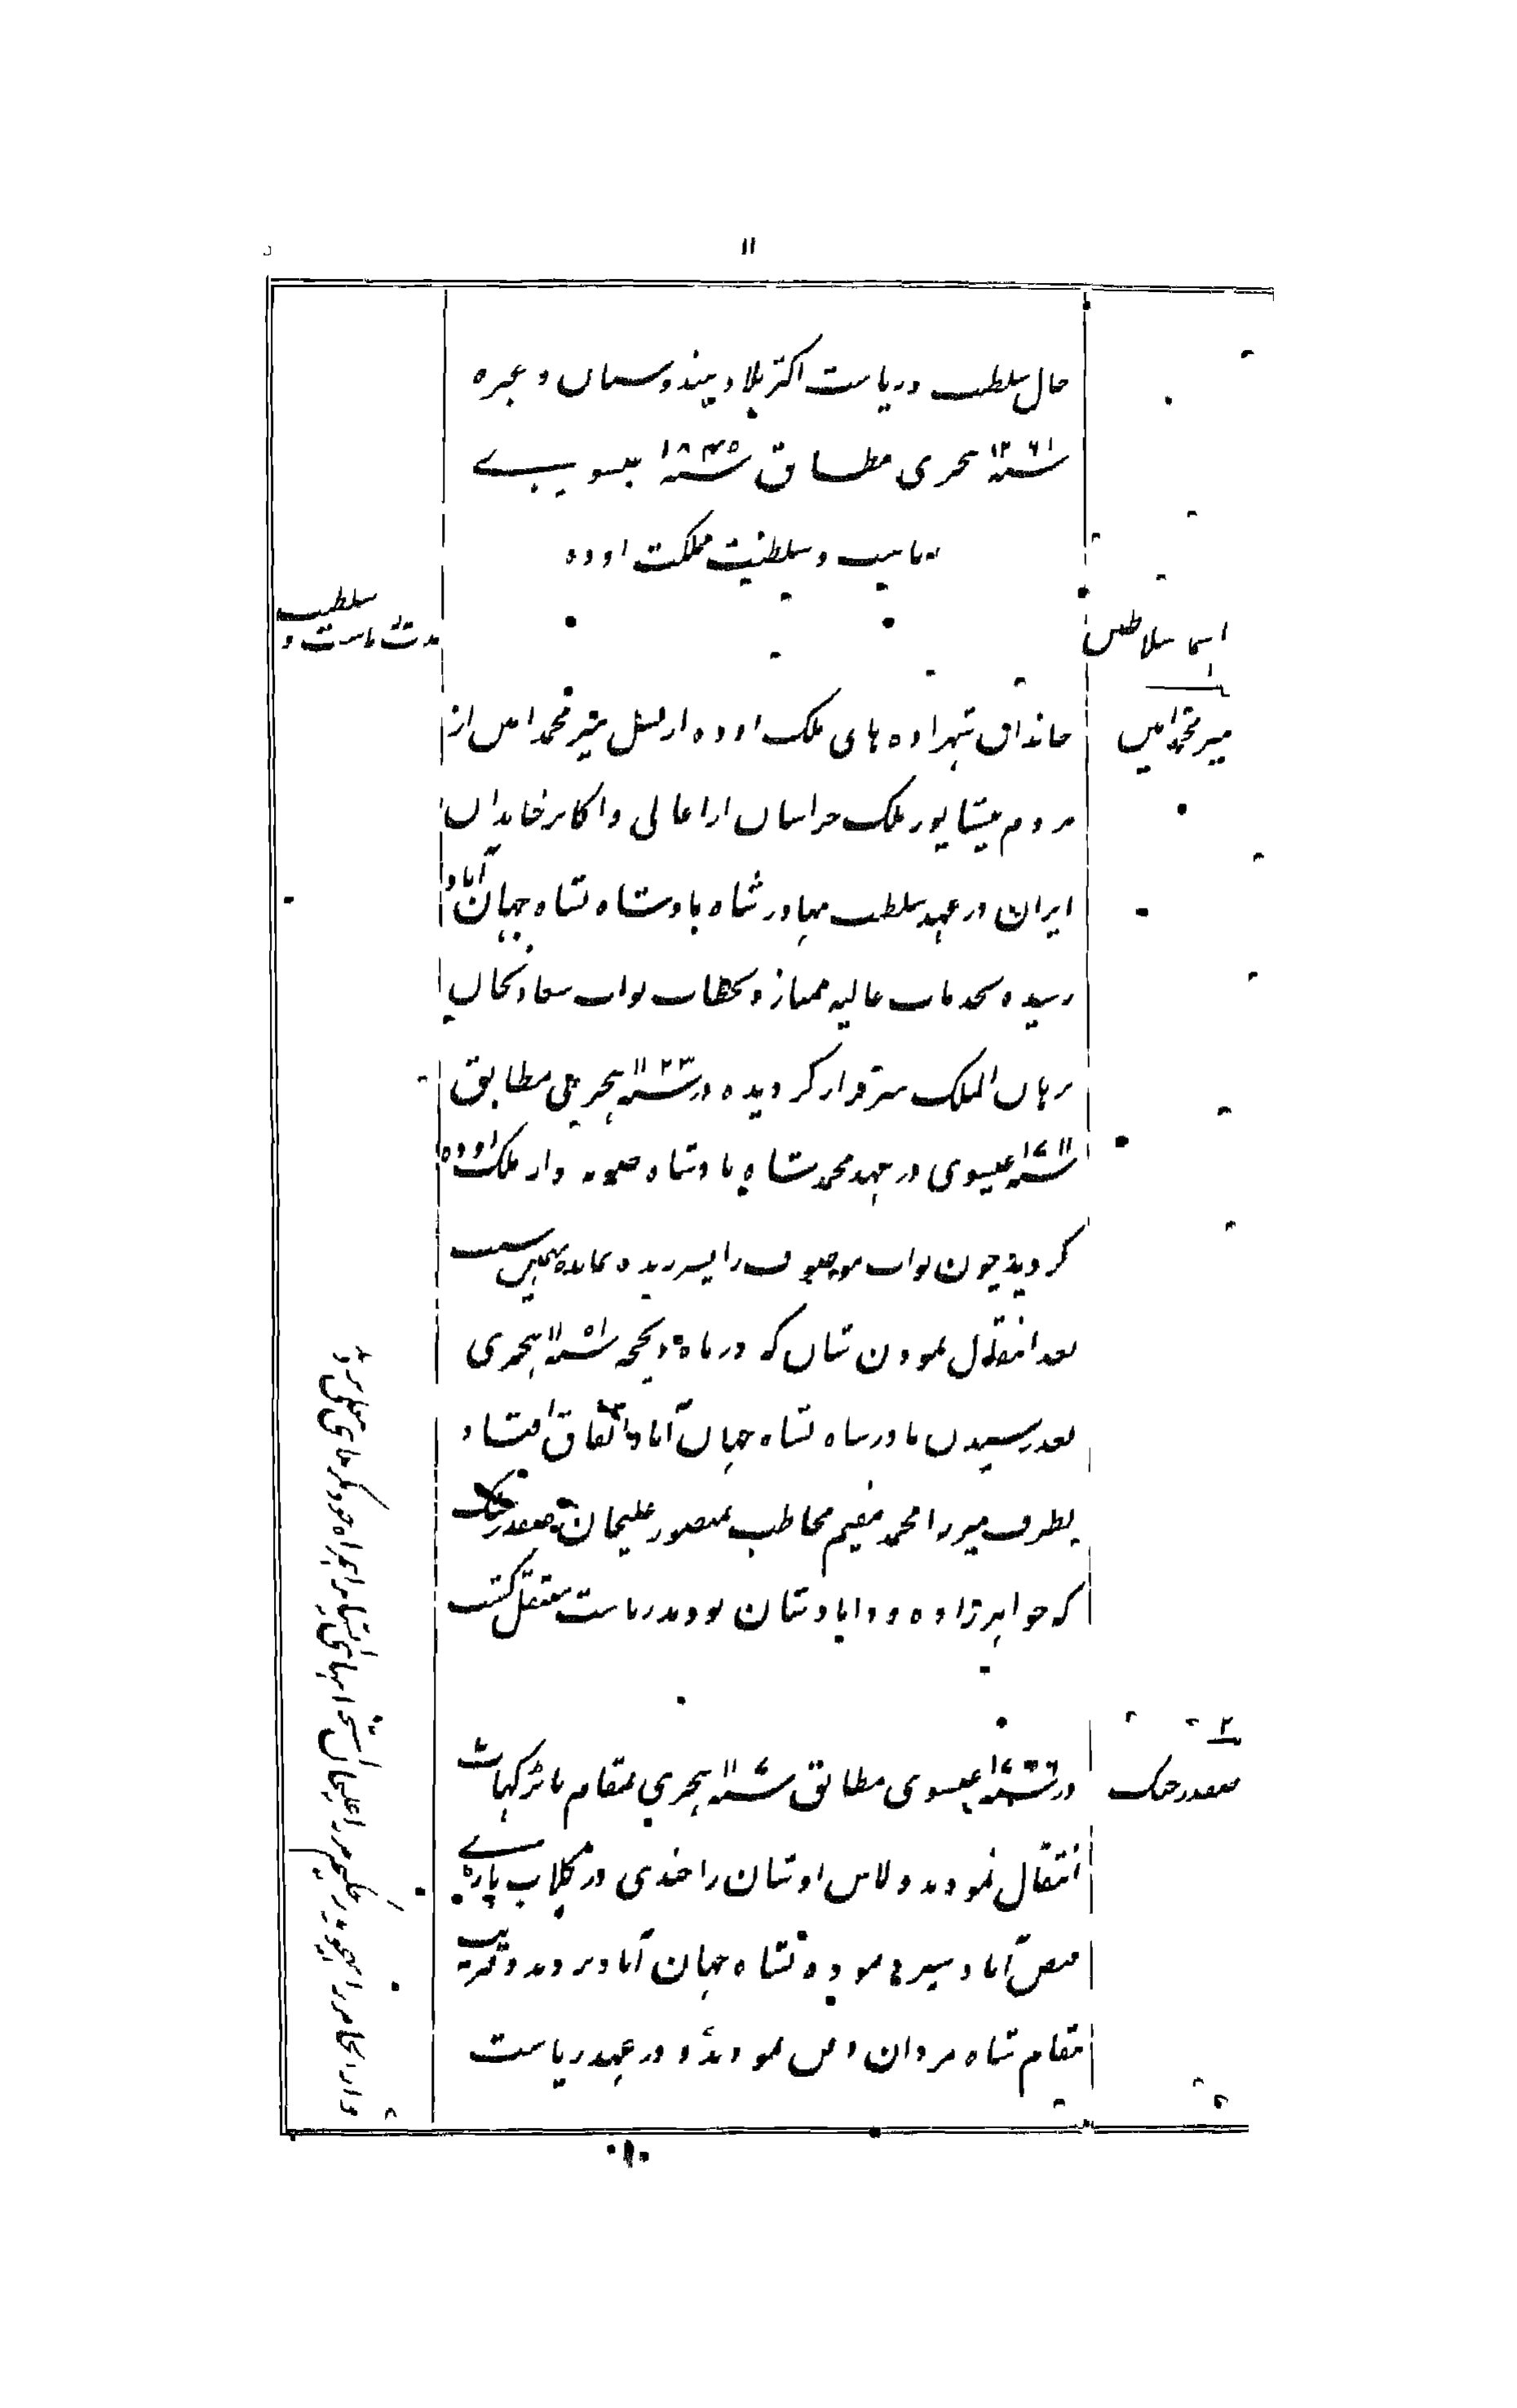 ۱۱
حال سلطنت و ریاست اکثر بلاد هندوستان و غیره
سنه ۱۲۶۱ هجری مطابق سنه ۱۸۴۵ عیسویے
نیابت و سلطنت مملکت اوده
اسما سلاطین
مدت ریاست و سلطنت
۱
میر محمد امین
خاندان شهزاده های ملک اوده از نسل میر محمد امین از
مردم نیشاپور ملک خراسان از اعالی و اکابر خاندان
ایران در عهد سلطنت بهادر شاه بادشاه بشاه جهان آباد
رسیده بخدمات عالیه ممتاز و بخطاب نواب سعادتخان
برهان الملک سرفراز گردیده در سنه ۱۱۲۳ هجری مطابق
سنه ۱۷۱۱ عیسوی در عهد محمد شاه بادشاه صوبه دار ملک اوده
گردید چون نواب موصوف را پسر زنده نمانده بهمین سبب
بعد انتقال نمودن شان که در ماه ذیحجه سنه ۱۱۵۱ هجری
بعد رسیدن نادر شاه بشاه جهان آباد اتفاق افتاد
بطرف میرزا محمد مقیم مخاطب بمنصور علیخان صفدر جنگ
که خواهرزاده و داماد شان بودند ریاست منتقل گشت
۲
صفدر جنگ
در سنه عیسوی مطابق سنه هجری بمقام پاپڑ گهاٹ
انتقال نمودند و لاش اوشان را چندی در گلاب باڑی
فیض آباد سپرد نموده بشاه جهان آباد بردند و قریب
مقام شاه مردان دفن نمودند و در عهد ریاست